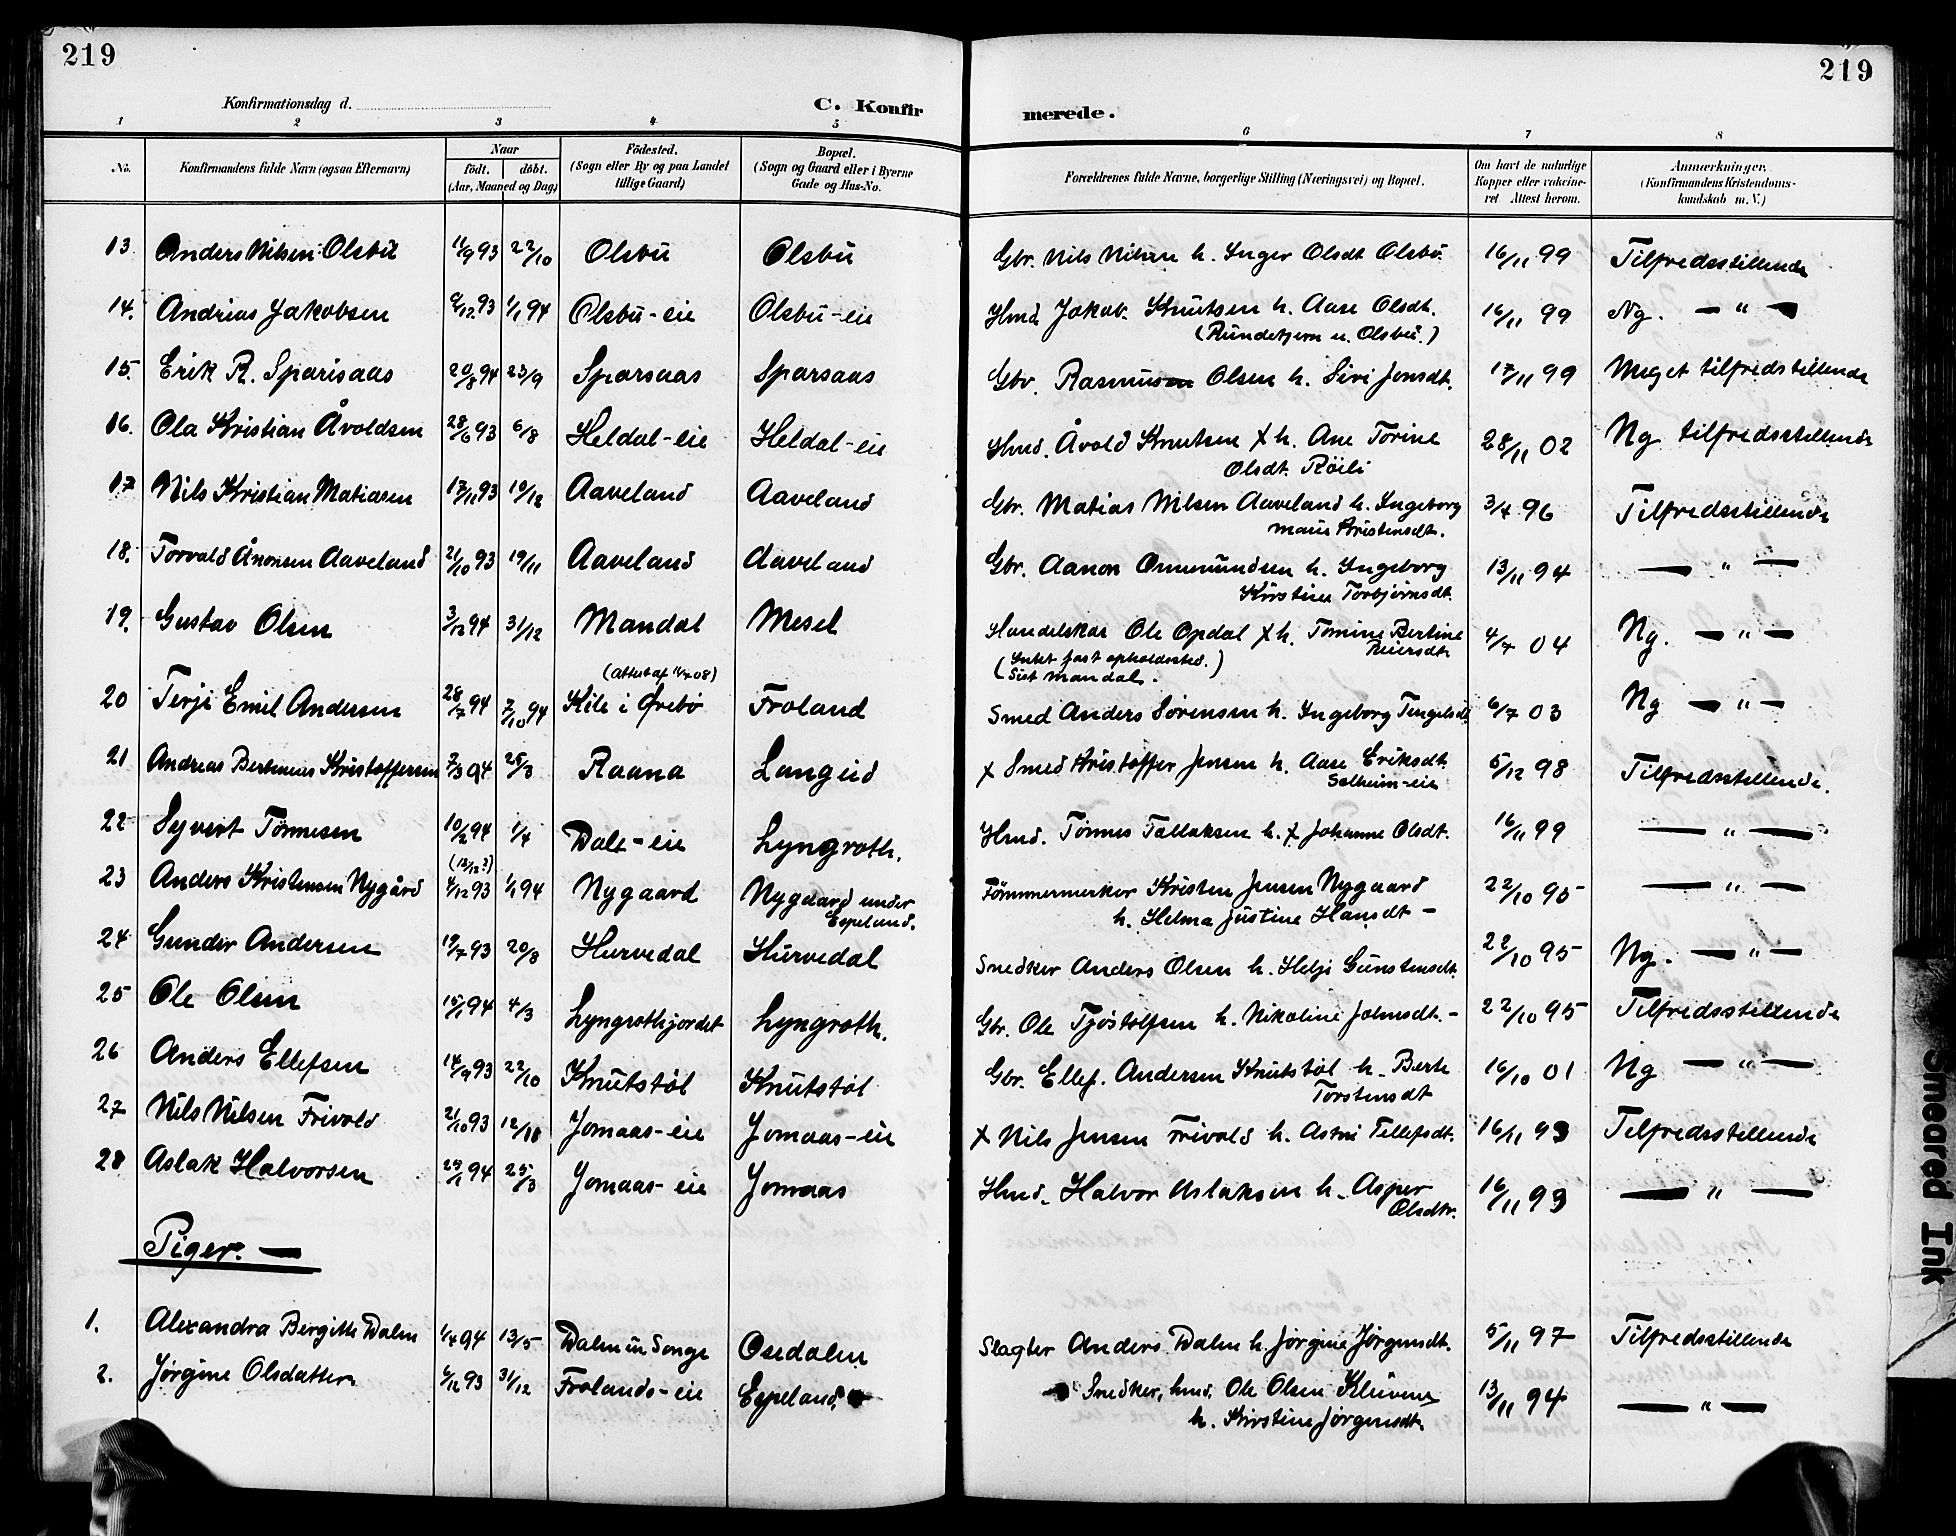 219
219
Konfirmationsdag d.
C. Konfirmerede.
1 2 3 4 5 6 7 8
No.
Konfirmandens fulde Navn (ogsaa Efternavn)
Naar
født. døbt.
(Aar, Maaned og Dag)
Fødested.
(Sogn eller By og paa Landet
tillige Gaard)
Bopæl.
(Sogn og Gaard eller i Byerne
Gade og Hus-No.
Forældrenes fulde Navne, borgerlige Stilling (Næringsvei) og Bopæl.
Om havt de naturlige
Kopper eller vakcine-
ret Attest herom.
Anmærkninger.
(Konfirmandens Kristendoms-
kundskab m. V.)
13. Anders Nilsen Olsbu 11/9 93 22/10 Olsbu Olsbu Gbr. Nils Nilsen h. Inger Olsdt Olsbu. 16/11 99 Tilfredsstillende
14. Andreas Jakobsen 9/12 93 1/1 94 Olsbu-eie Olsbu-eie Hmd. Jakob Knutsen h. Aase Olsdt. 16/11 99 Ng. — " —
(Rundetjern u. Olsbu.)
15. Erik R. Sparsaas 20/8 94 23/9 Sparsaas Sparsaas Gbr. Rasmus Olsen h. Siri Jonsdt. 17/11 99 Meget tilfredsstillende
16. Ola Kristian Åvoldsen 28/6 93 6/8 Heldal-eie Heldal-eie Hmd. Åvold Knutsen + h. Ane Torine 28/11 02 Ng tilfredsstillende
Olsdt. Röili
17 Nils Kristian Matiasen 17/11 93 10/12 Aaveland Aaveland Gbr. Matias Nilsen Aaveland h. Ingeborg 3/4 96 Tilfredsstillende
Marie Kristensdt.
18. Torvald Ånonsen Aaveland 21/10 93 19/11 Aaveland Aaveland Gbr. Aanon Ommundsen h. Ingeborg 13/11 94 — " —
Kirstine Torbjørnsdt.
19. Gustav Olsen 3/12 94 31/12 Mandal Mesel Handelskar Ole Opdal + h. Tomine Bertine 4/7 04 Ng. — " —
Reiersdt
(Intet fast opholdssted.)
(Sist Mandal.
(Attest af 1/7 08)
20 Terje Emil Andersen 28/7 94 7/10 94 Kile i Ørebö Froland Smed Anders Sörensen h. Ingeborg Tengelsdt 6/7 03 Ng — " —
21 Andreas Bertinius Kristoffersen 7/3 94 25/3 Raana Langlid + Smed Kristoffer Jensen h. Aase Eriksdt. 5/12 98 Tilfredsstillende.
Solheim-eie
22 Syvert Tönnesen 10/2 94 1/4 Dale-eie Lyngroth. Hmd. Tönnes Tallaksen h. + Johanne Olsdt. 16/11 99 — " —
(13/12?)
23 Anders Kristensen Nygård 4/12 93 1/1 94 Nygaard Nygaard under Tömmermerker Kristen Jensen Nygaard 22/10 95 — " —
Espeland. h. Helma Justine Hansdt –
24 Gunder Andersen 19/7 93 20/8 Hurvedal Hurvedal Snedker Anders Olsen h. Helje Gunstensdt. 22/10 95 Ng. — " —
25 Ole Olsen 15/1 94 4/3 Lyngrothjordet Lyngroth. Gbr. Ole Tjöstolfsen h. Nikoline Johnsdt. – 22/10 95 Tilfredsstillende
26 Anders Ellefsen 14/9 93 22/10 Knutstöl Knutstöl Gbr. Ellef Andersen Knutstöl h. Berte 16/10 01 Ng — " —
Torstensdt
27 Nils Nilsen Frivold 21/10 93 12/11 Jomaas-eie Jomaas-eie + Nils Jensen Frivold h. Astri Tellefsdt. 16/11 99 Tilfredsstillende
28 Aslak Halvorsen 29/1 94 25/3 Jomaas-eie Jomaas Hmd. Halvor Aslaksen h. Asper 16/11 99 — " —
Olsdtr.
Piger. —
1. Alexandra Bergitte Dalen 1/4 94 13/5 Dalen in Songe Osedalen Slagter Anders Dalen h. Jørgine Jørgensdt. 5/11 97 Tilfredsstillende
2. Jørgine Olsdatter 6/12 93 31/12 Frolands-eie Espeland. Snedker, hmd. Ole Olsen Kluvene 13/11 94 — " —
h. Kirstine Jørgensdt.
Smeared Ink